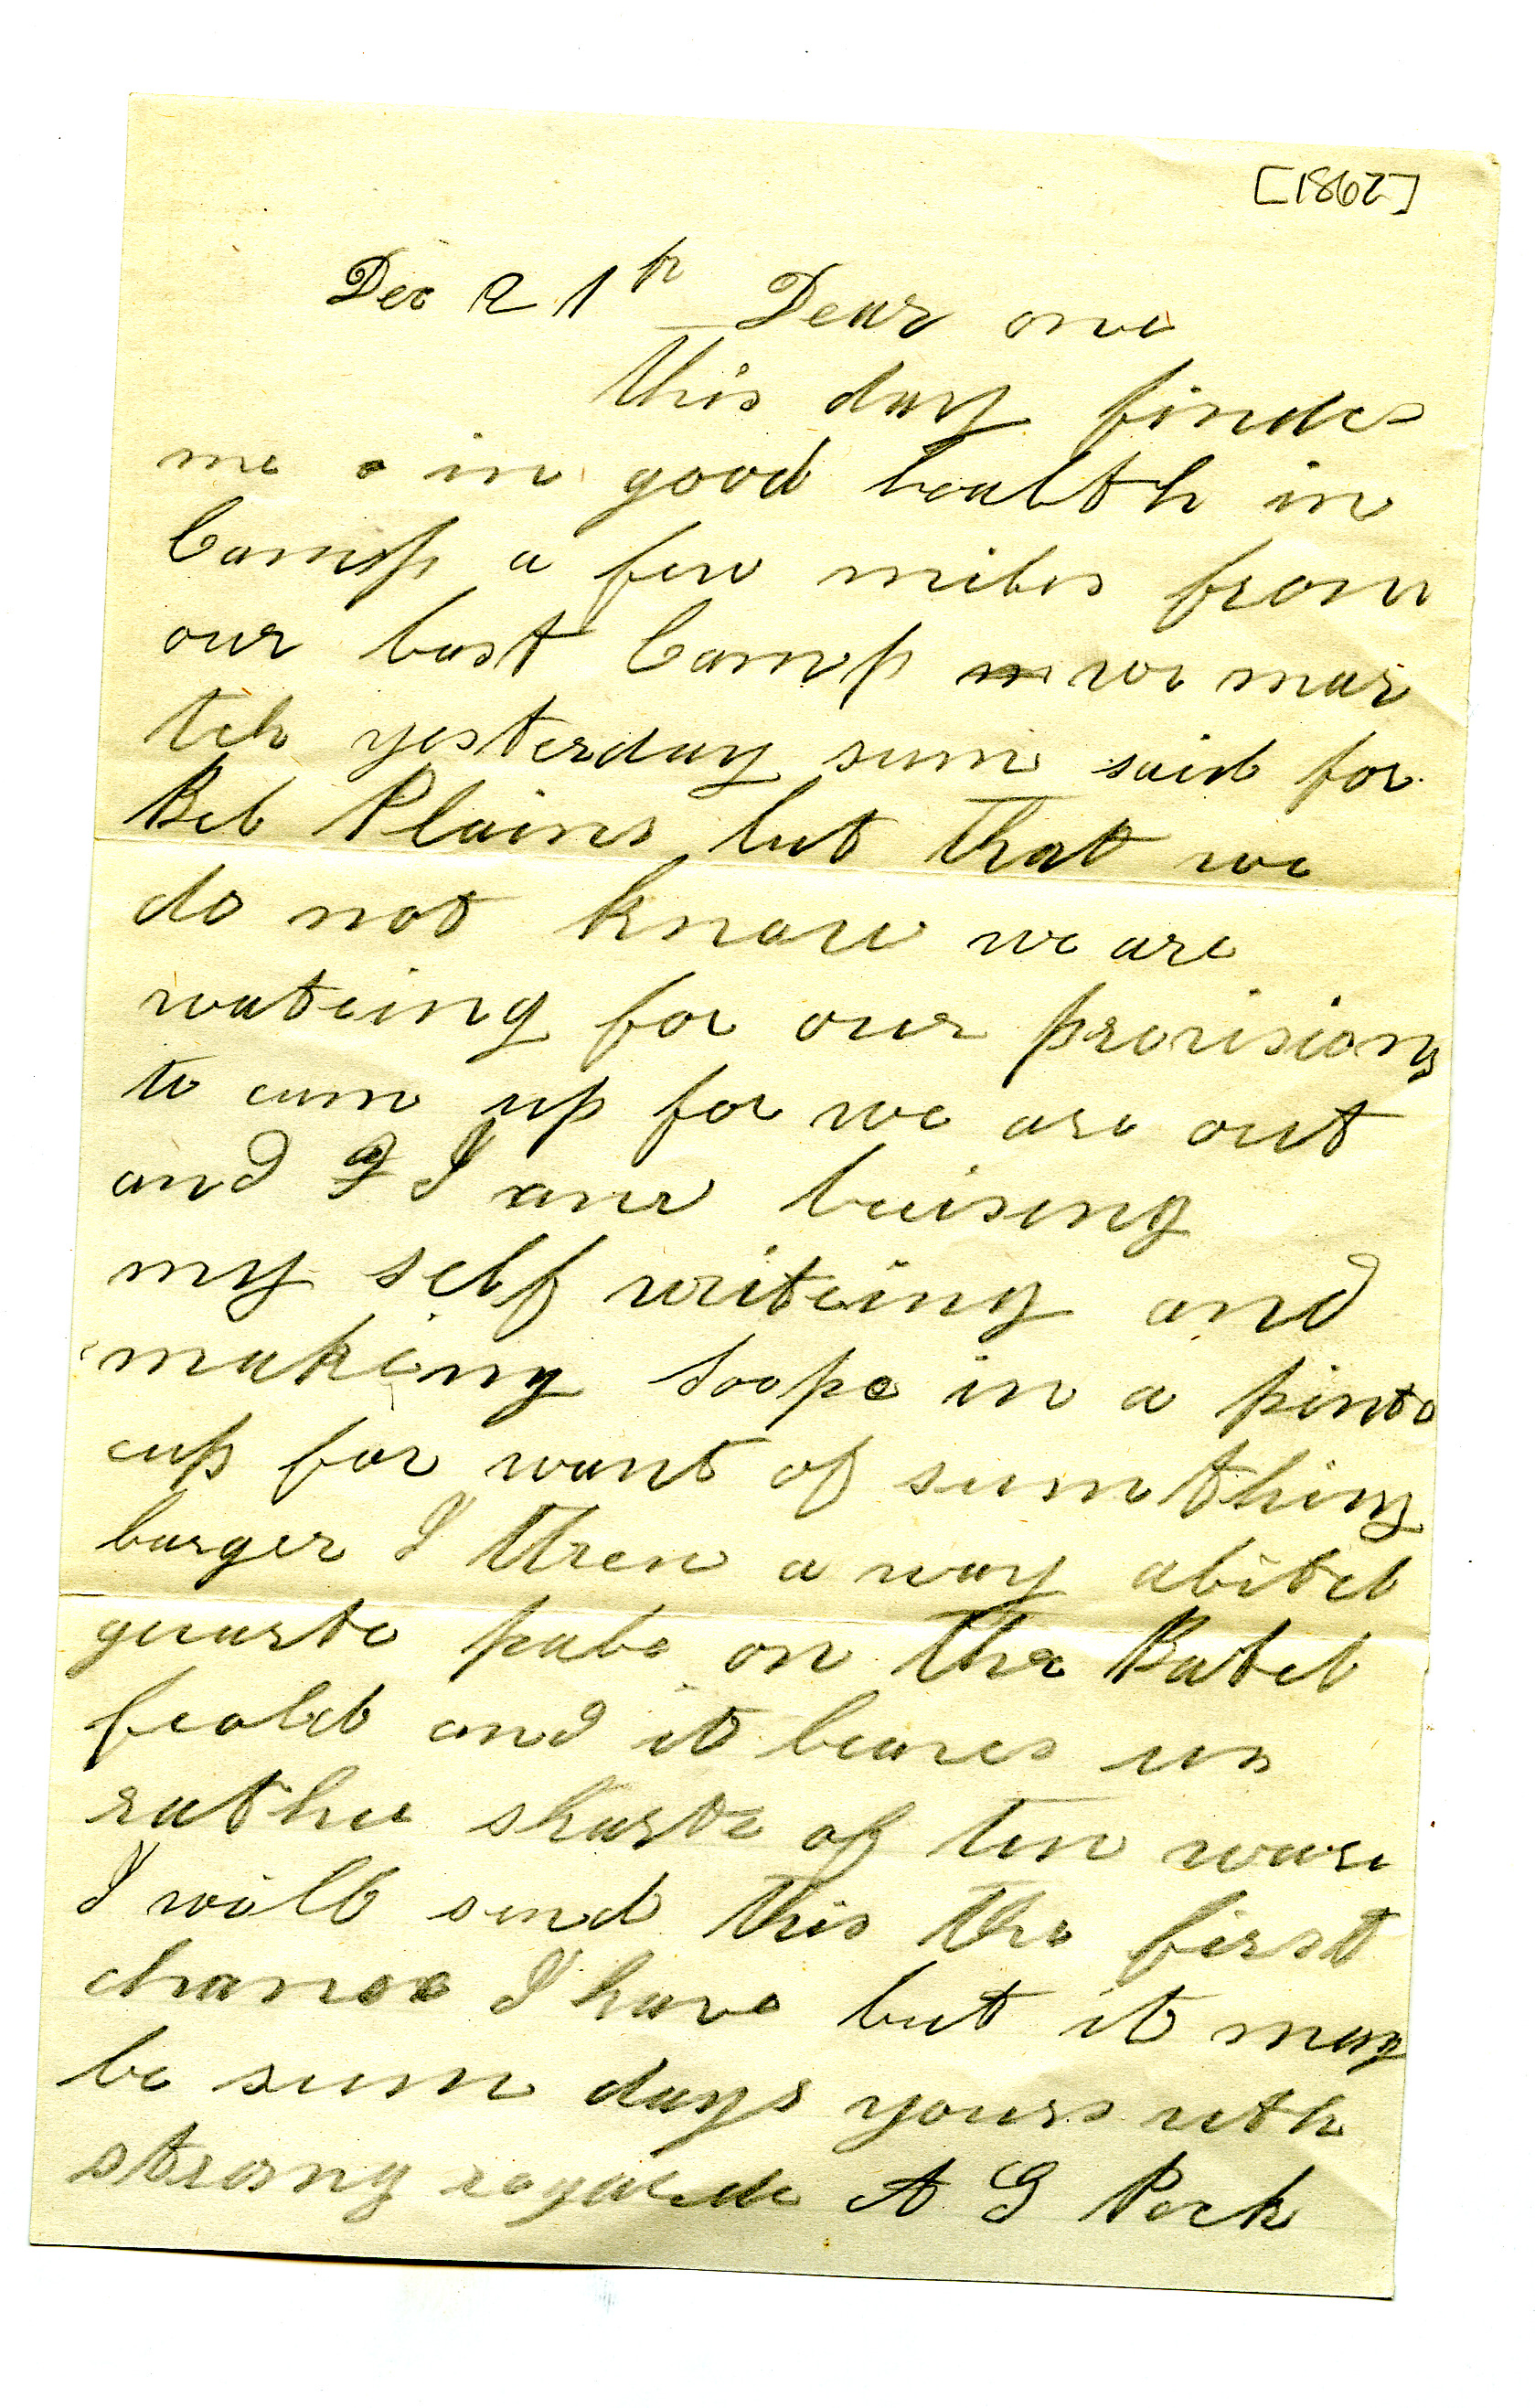 [1862]
Dec 21th Dear one
this day findes
me in good healtth in
Camp a few miles from
our last Camp we mar
tch yesterday sum said for
Bel Plains but that we
do not know we are
wateing for our provisions
to cum up for we are out
and I I am buising
my self writeing and
makeing Soope in a pinte
cup for want of sumthing
larger I thren a way a litel
quarte pale on the Batel
feald and it leaves us
rather sharte of tin ware
I will send this the first
chance I have but it may
be sum days yours with
strong regarde A G Peck